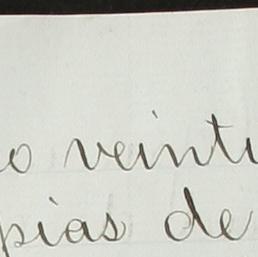 o veinti
pias de